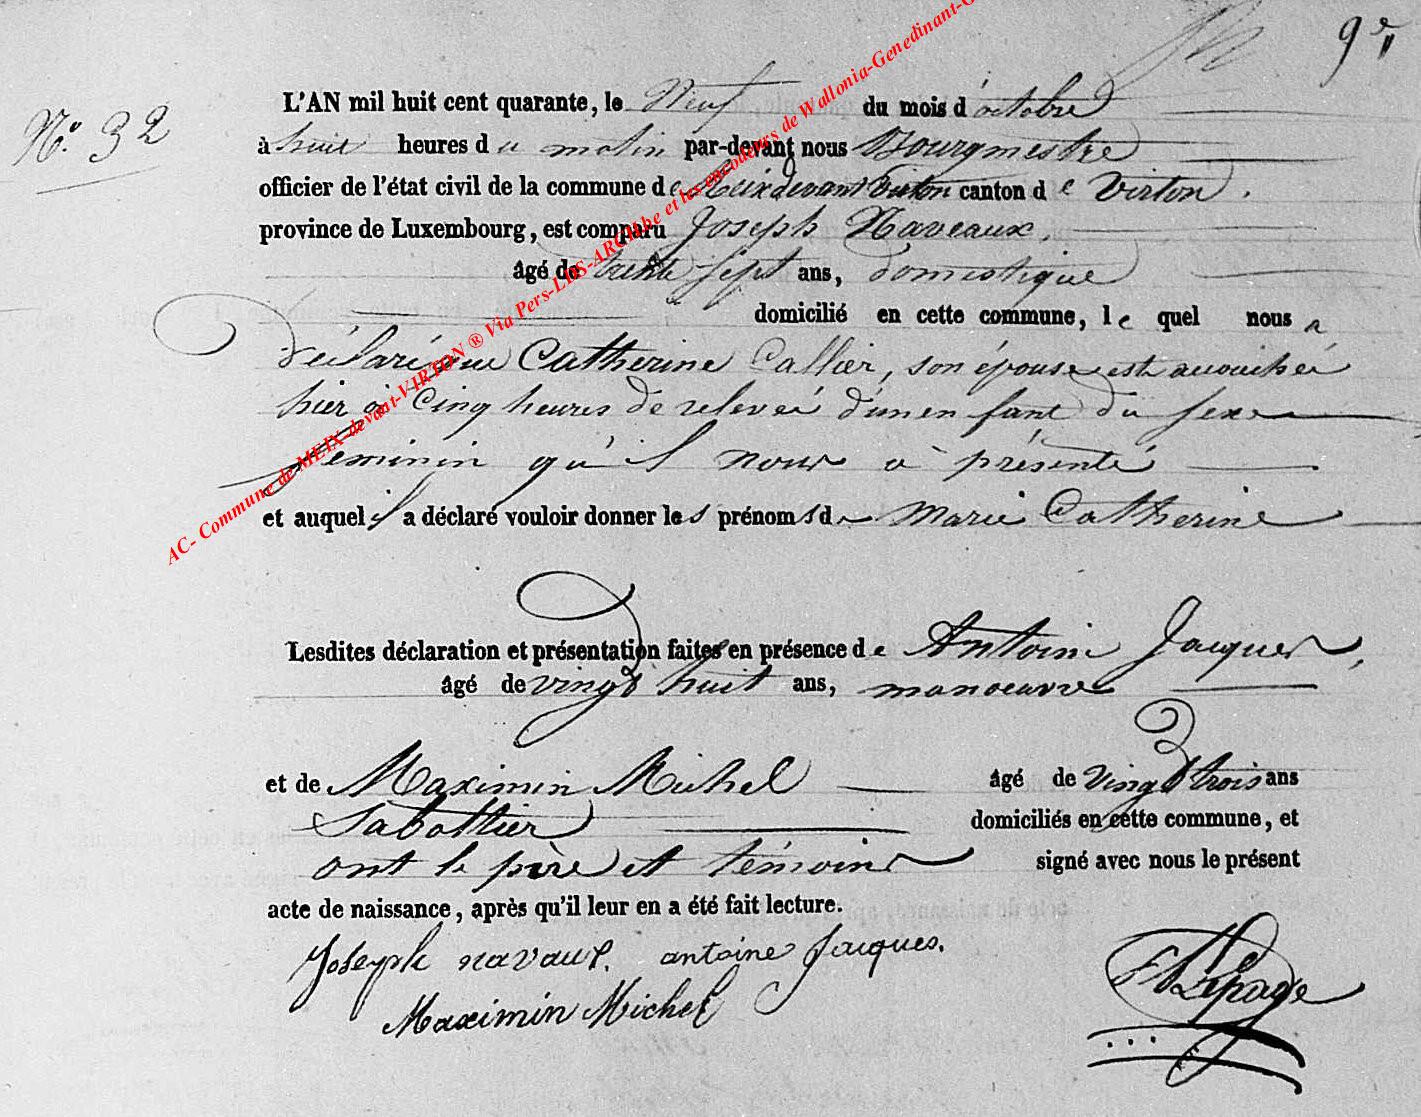 9e
N° 32
L'AN mil huit cent quarante, le Neuf du mois d'octobre
à huit heures du matin par-devant nous Bourgmestre
officier de l'état civil de la commune de Meix devant Virton canton de Virton.
province de Luxembourg, est comparu Joseph Naveaux,
âgé de trente sept ans, domestique
domicilié en cette commune, lequel nous a
déclaré que Catherine Callier, son épouse est accouchée
hier à Cinq heures de relevée d'un enfant du sexe
feminin qu'il nous a présenté
et auquel il a déclaré vouloir donner les prénoms de Marie Catherine
Lesdites déclaration et présentation faites en présence de Antoine Jacques,
âgé de vingt huit ans, manoeuvre
et de Maximin Michel âgé de vingt trois ans
Sabottier domiciliés en cette commune, et
ont le père et témoins signé avec nous le présent
acte de naissance, après qu'il leur en a été fait lecture.
Joseph navaux. antoine Jacques.
Maximin Michel
Lepage
AC- Commune de MEIX-devant-VIRTON ® Via Pers-LDS-ARCH.be et les encodeurs de Wallonia-Genedinant-G